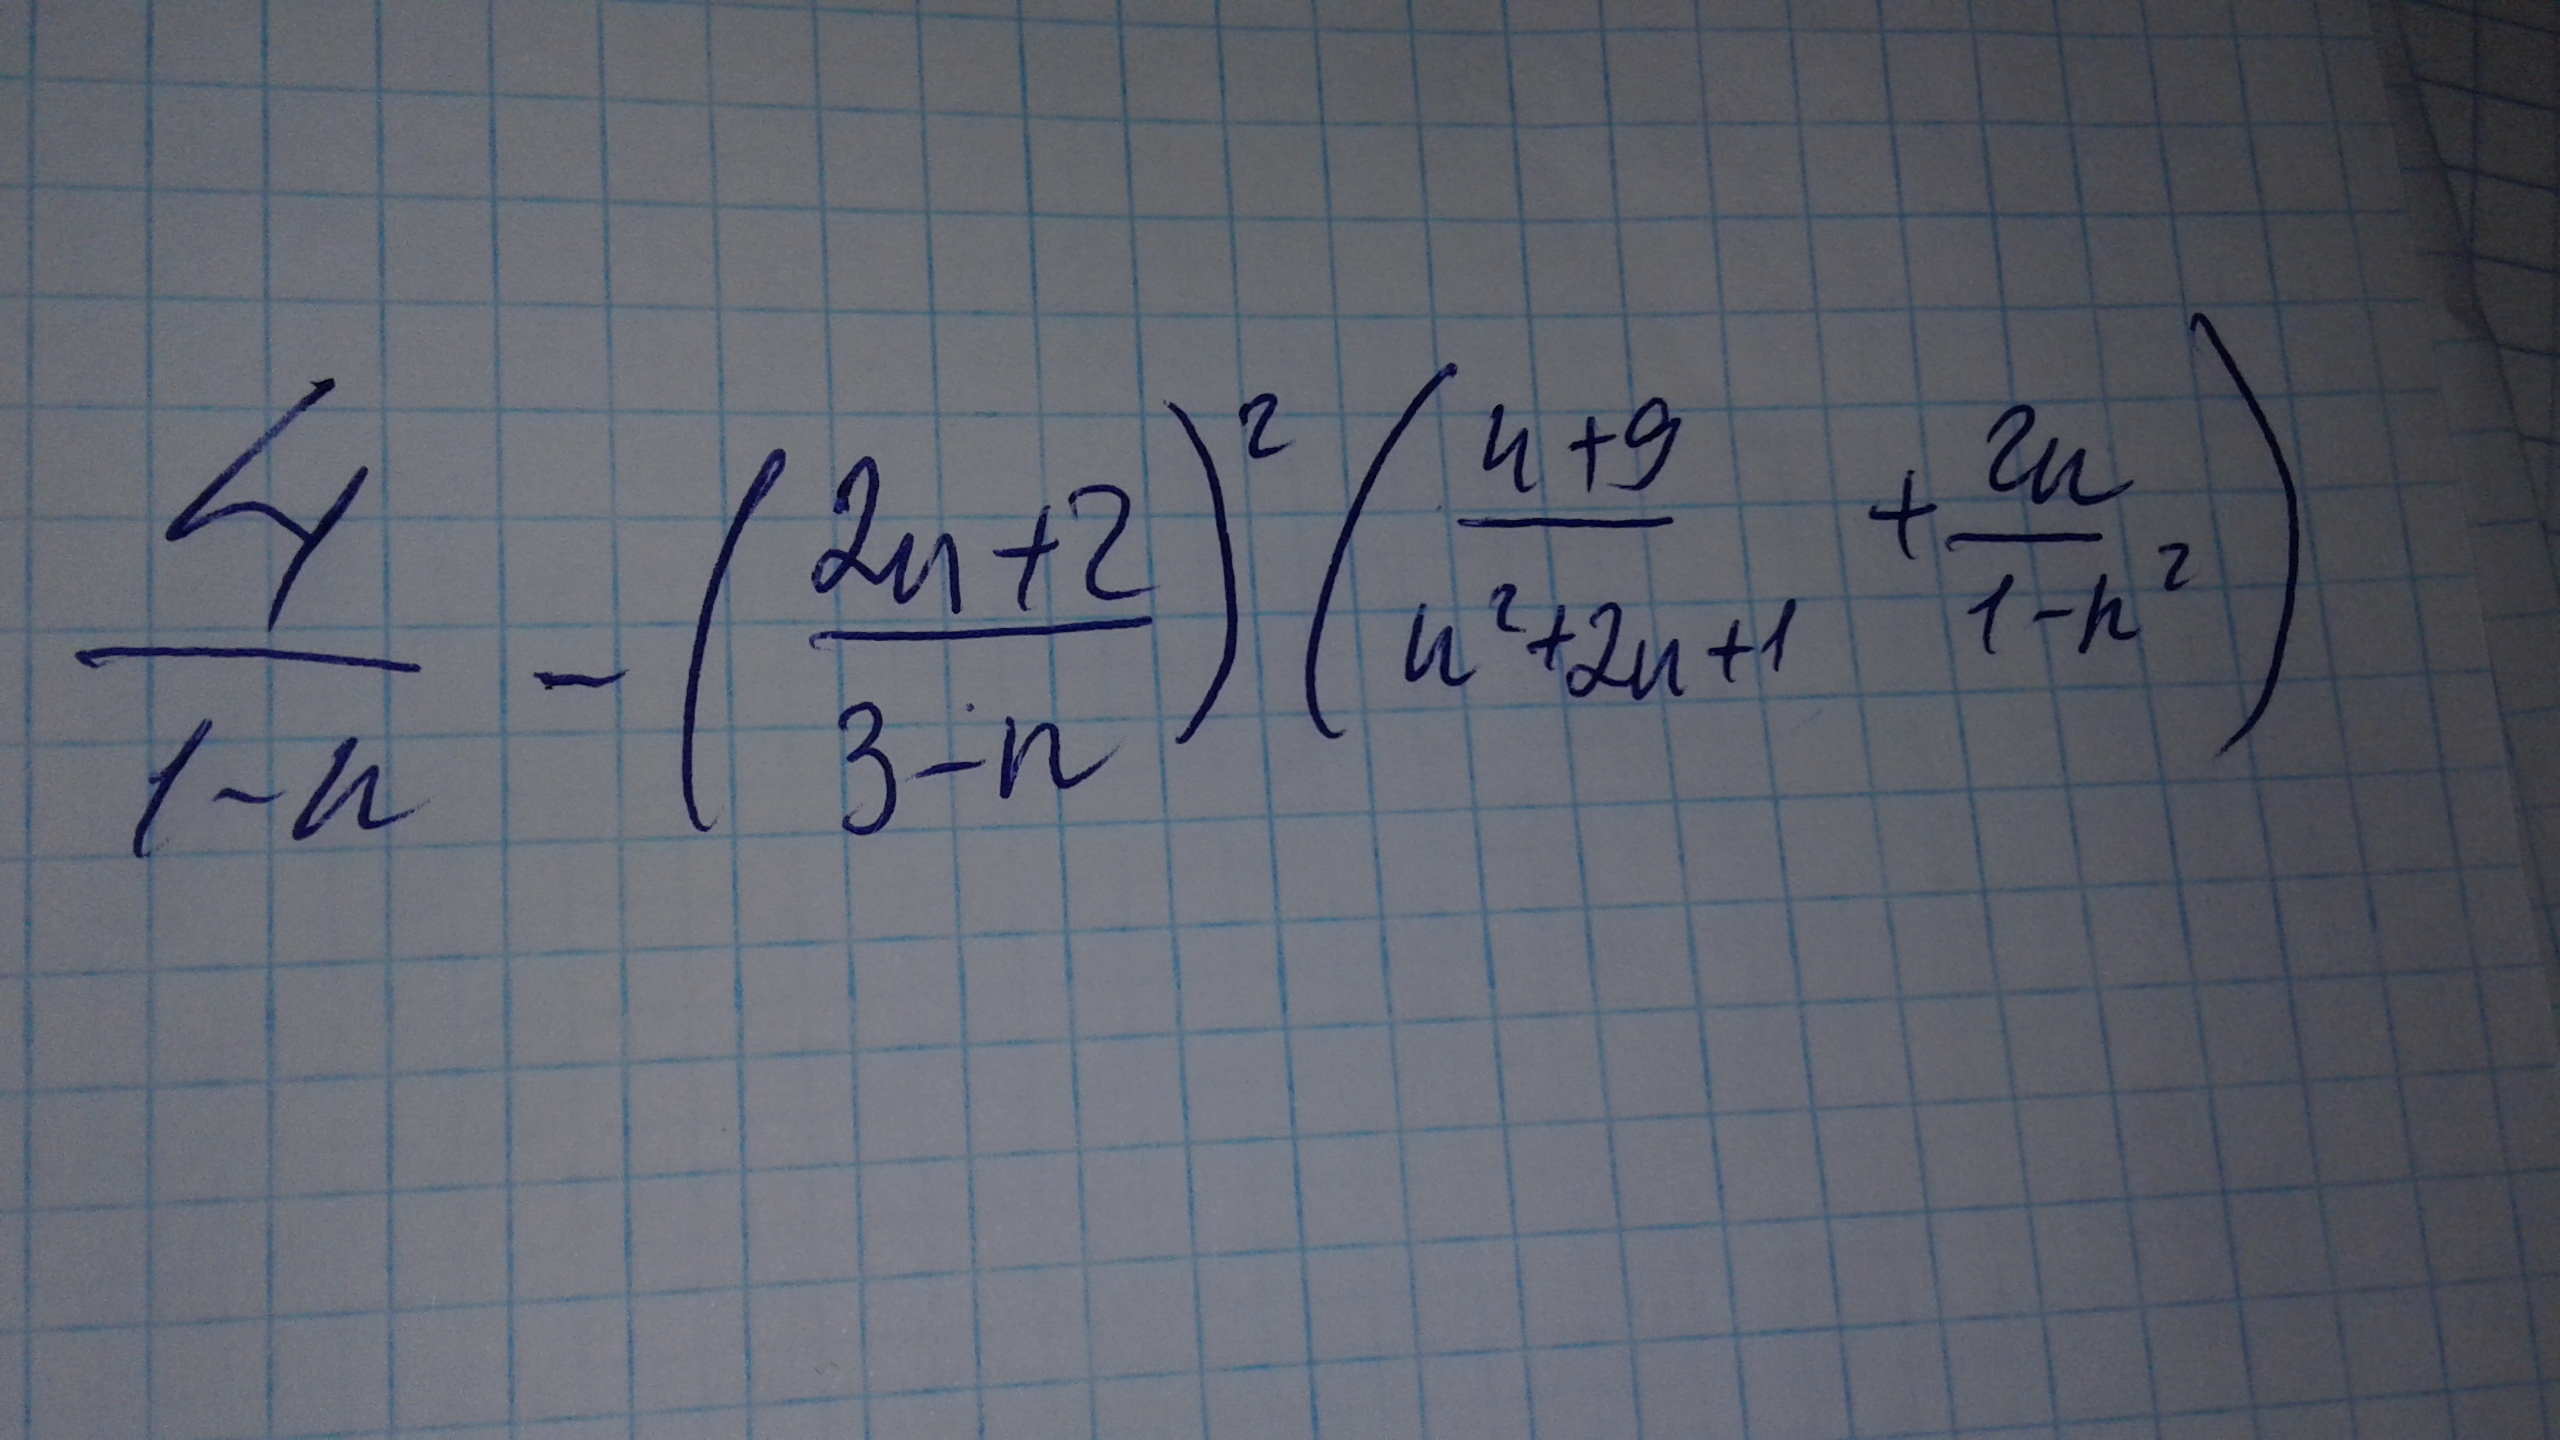 4/(1-n) - ((2n+2)/(3-n))² ((n+9)/(n²+2n+1) + 2n/(1-n²))